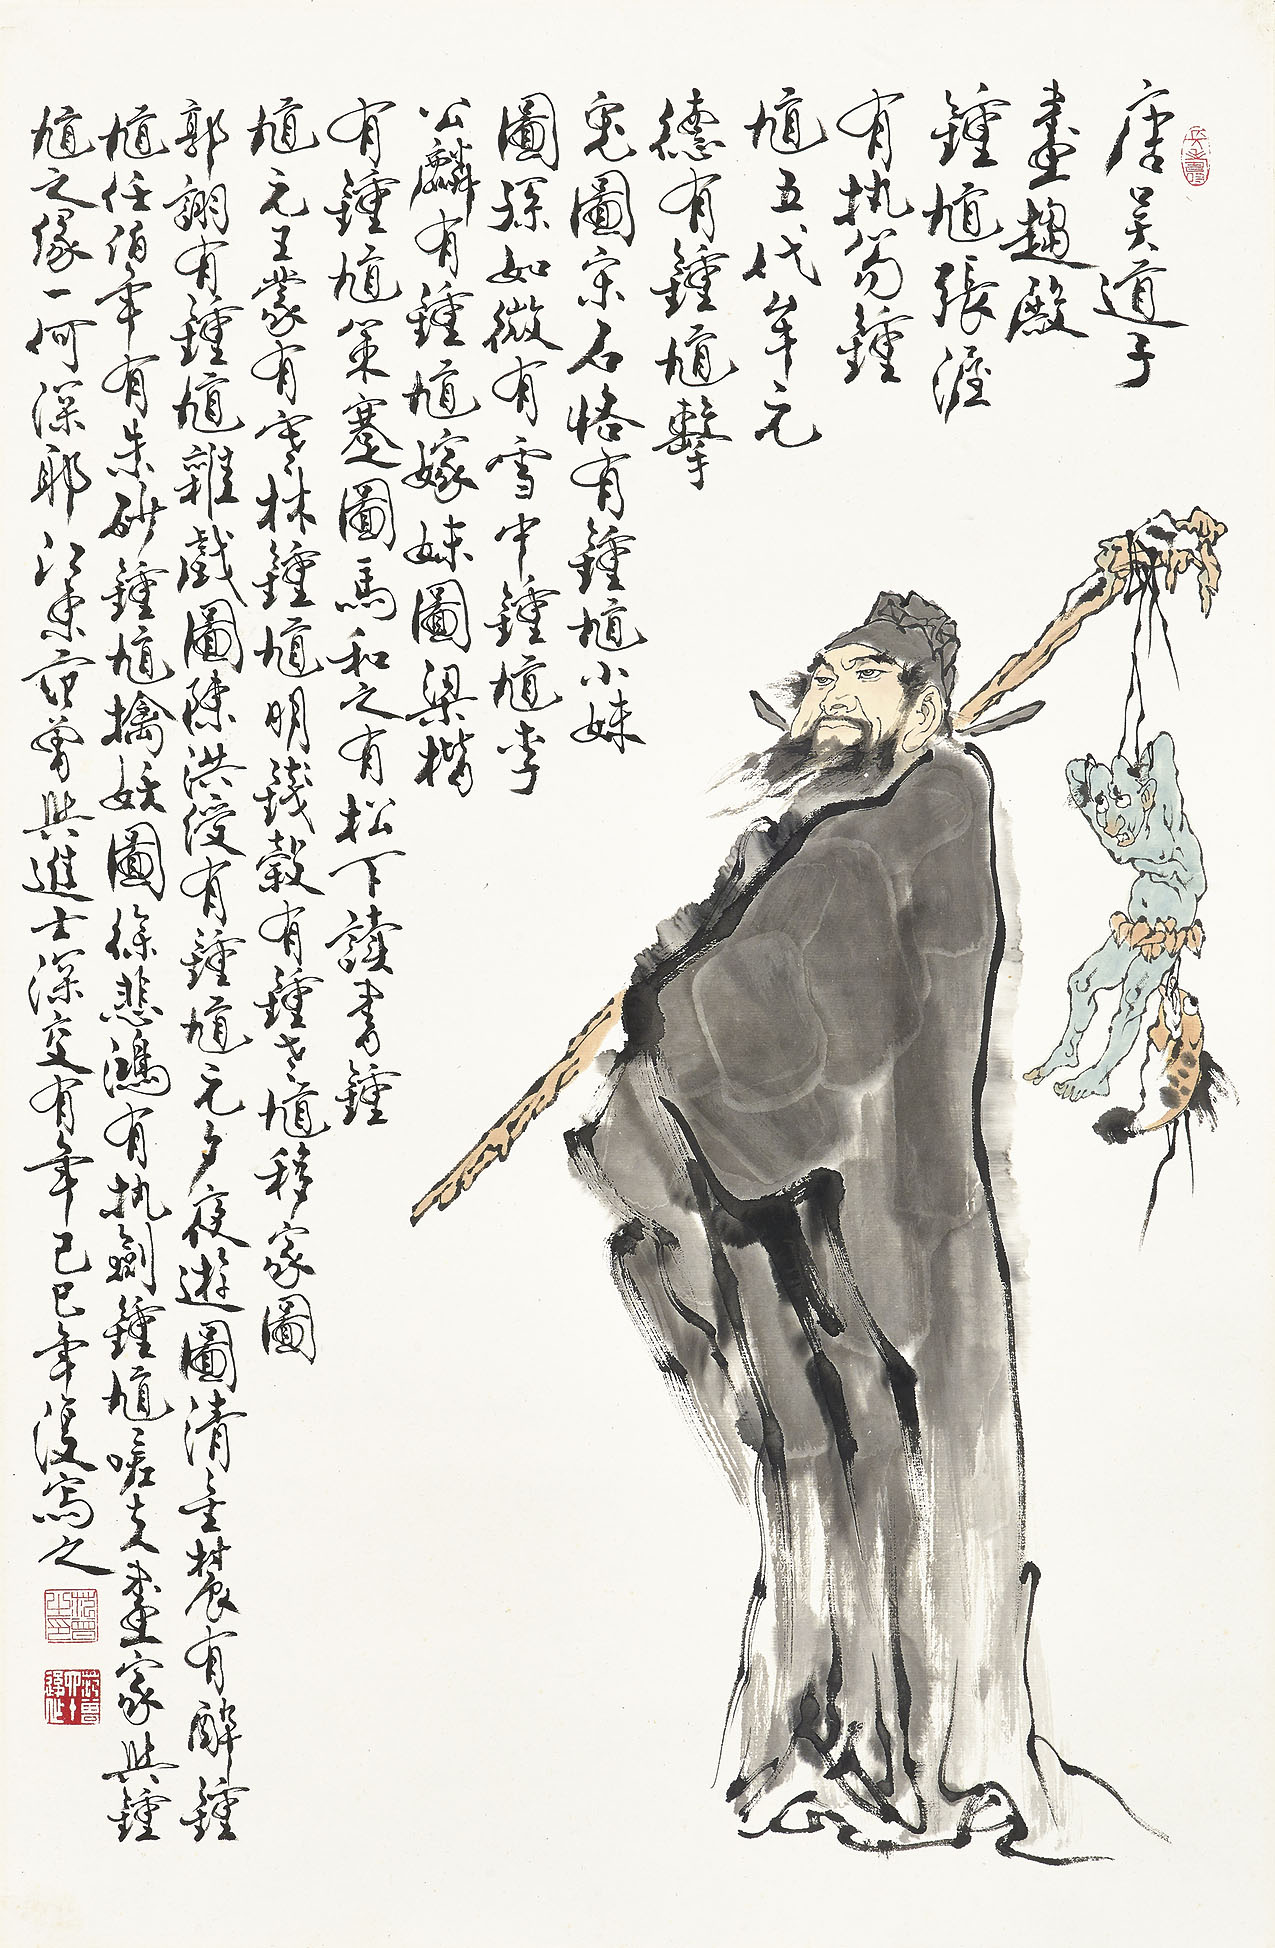 唐吴道子
畫趨殿
鍾馗張渥
有执笏鍾
馗五代牟元
德有鍾馗擊
鬼圖宗石恪有鍾馗小妹
圖孫如微有雪中鍾馗李
公麟有鍾馗嫁妹圖梁楷
有鍾馗策蹇圖馬和之有松下讀書鍾
馗元王蒙有寒林鍾馗明錢穀有鍾馗移家圖
郭詡有鍾馗雜戲圖陳洪綬有鍾馗元夕夜遊圖清金農有醉鍾
馗任伯年有朱砂鍾馗擒妖圖徐悲鴻有执劍鍾馗嗟夫畫家與鍾
馗之緣一何深耶江東范曾與進士深交有年己巳年復寫之
范曾之印